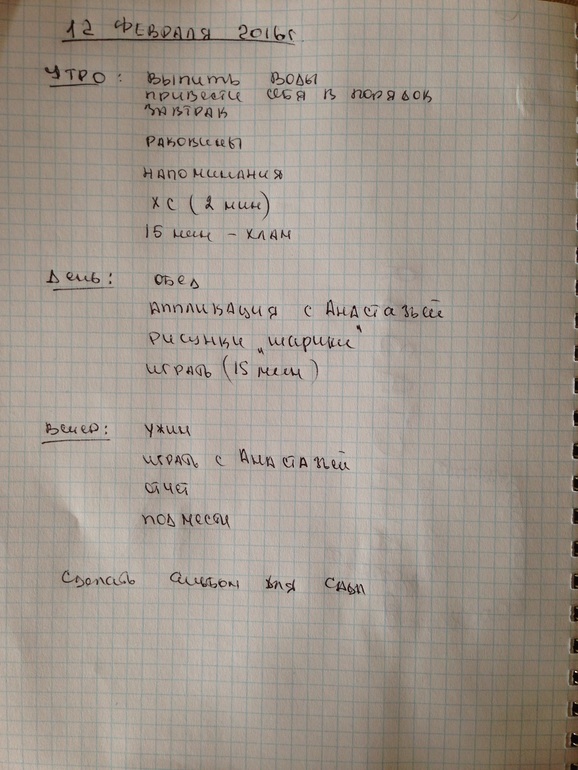 12 ФЕВРАЛЯ 2016г.
УТРО: ВЫПИТЬ ВОДЫ
ПРИВЕСТИ СЕБЯ В ПОРЯДОК
ЗАВТРАК
РАКОВИНЫ
НАПОМИНАНИЯ
ХС (2 мин)
15 мин - ХЛАМ
День: ОБЕД
АППЛИКАЦИЯ С АНАСТАЗЬЕЙ
РИСУНКИ "шарики"
ИГРАТЬ (15 мин)
Вечер: УЖИН
ИГРАТЬ С АНАСТАЗЬЕЙ
ОТЧЕТ
ПОДМЕСТИ
Сделать альбом для